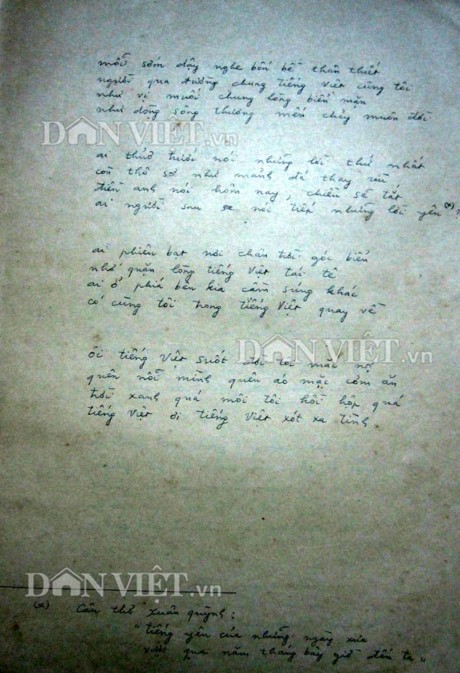 mỗi sớm dậy nghe bốn bề thân thiết
người qua đường chung tiếng Việt cùng tôi
như vị muối chung lòng biển mặn
như dòng sông thương mến chảy muôn đời
DÂN VIỆT.vn
ai thuở trước nói những lời thứ nhất
còn thô sơ như mảnh đá thay rìu
điều anh nói hôm nay, chiều sẽ tắt
ai người sau sẽ nói tiếp những lời yêu (*)?
ai phiêu bạt nơi chân trời góc biển
nhớ quặn lòng tiếng Việt tái tê
ai ở phía bên kia cầm súng khác
có cùng tôi trong tiếng Việt quay về
DÂN VIỆT.vn
ôi tiếng Việt suốt đời tôi mắc nợ
quên nỗi mình quên áo mặc cơm ăn
trời xanh quá môi tôi hồi hộp quá
tiếng Việt ơi tiếng Việt xót xa tình.
DÂN VIỆT.vn
(*) Câu thơ Xuân Quỳnh:
"tiếng yêu của những ngày xưa
vượt qua năm tháng bây giờ đến ta"